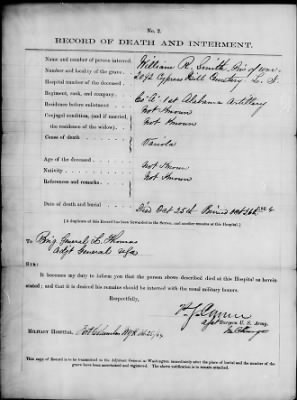 No. 2.
RECORD OF DEATH AND INTERMENT.
Name and number of person interred William R. Smith, Pris of war
Number and locality of the grave 2092 Cypress Hill Cemetery L. I.
Hospital number of the deceased
Regiment, rank, and company Co "A" 1st Alabama Artillery
Residence before enlistment Not Known
Conjugal condition, (and if married, Not Known
the residence of the widow)
Cause of death Variola
Age of the deceased Not Known
Nativity Not Known
References and remarks
Date of death and burial Died Oct 25th Buried Oct
[A duplicate of this Record has been forwarded to the Sexton, and another remains at this Hospital.]
To Brig General L. Thomas
Adjt General USA
SIR:
It becomes my duty to inform you that the person above described died at this Hospital as herein
stated; and that it is desired his remains should be interred with the usual military honors.
Respectfully,
Surgeon U. S. Army,
In Charge
MILITARY HOSPITAL, Fort Columbus N.Y.H. Oct 25/64
This copy of Record is to be transmitted to the Adjutant General at Washington immediately after the place of burial and the number of the
grave have been ascertained and registered. The above notification is to remain attached.